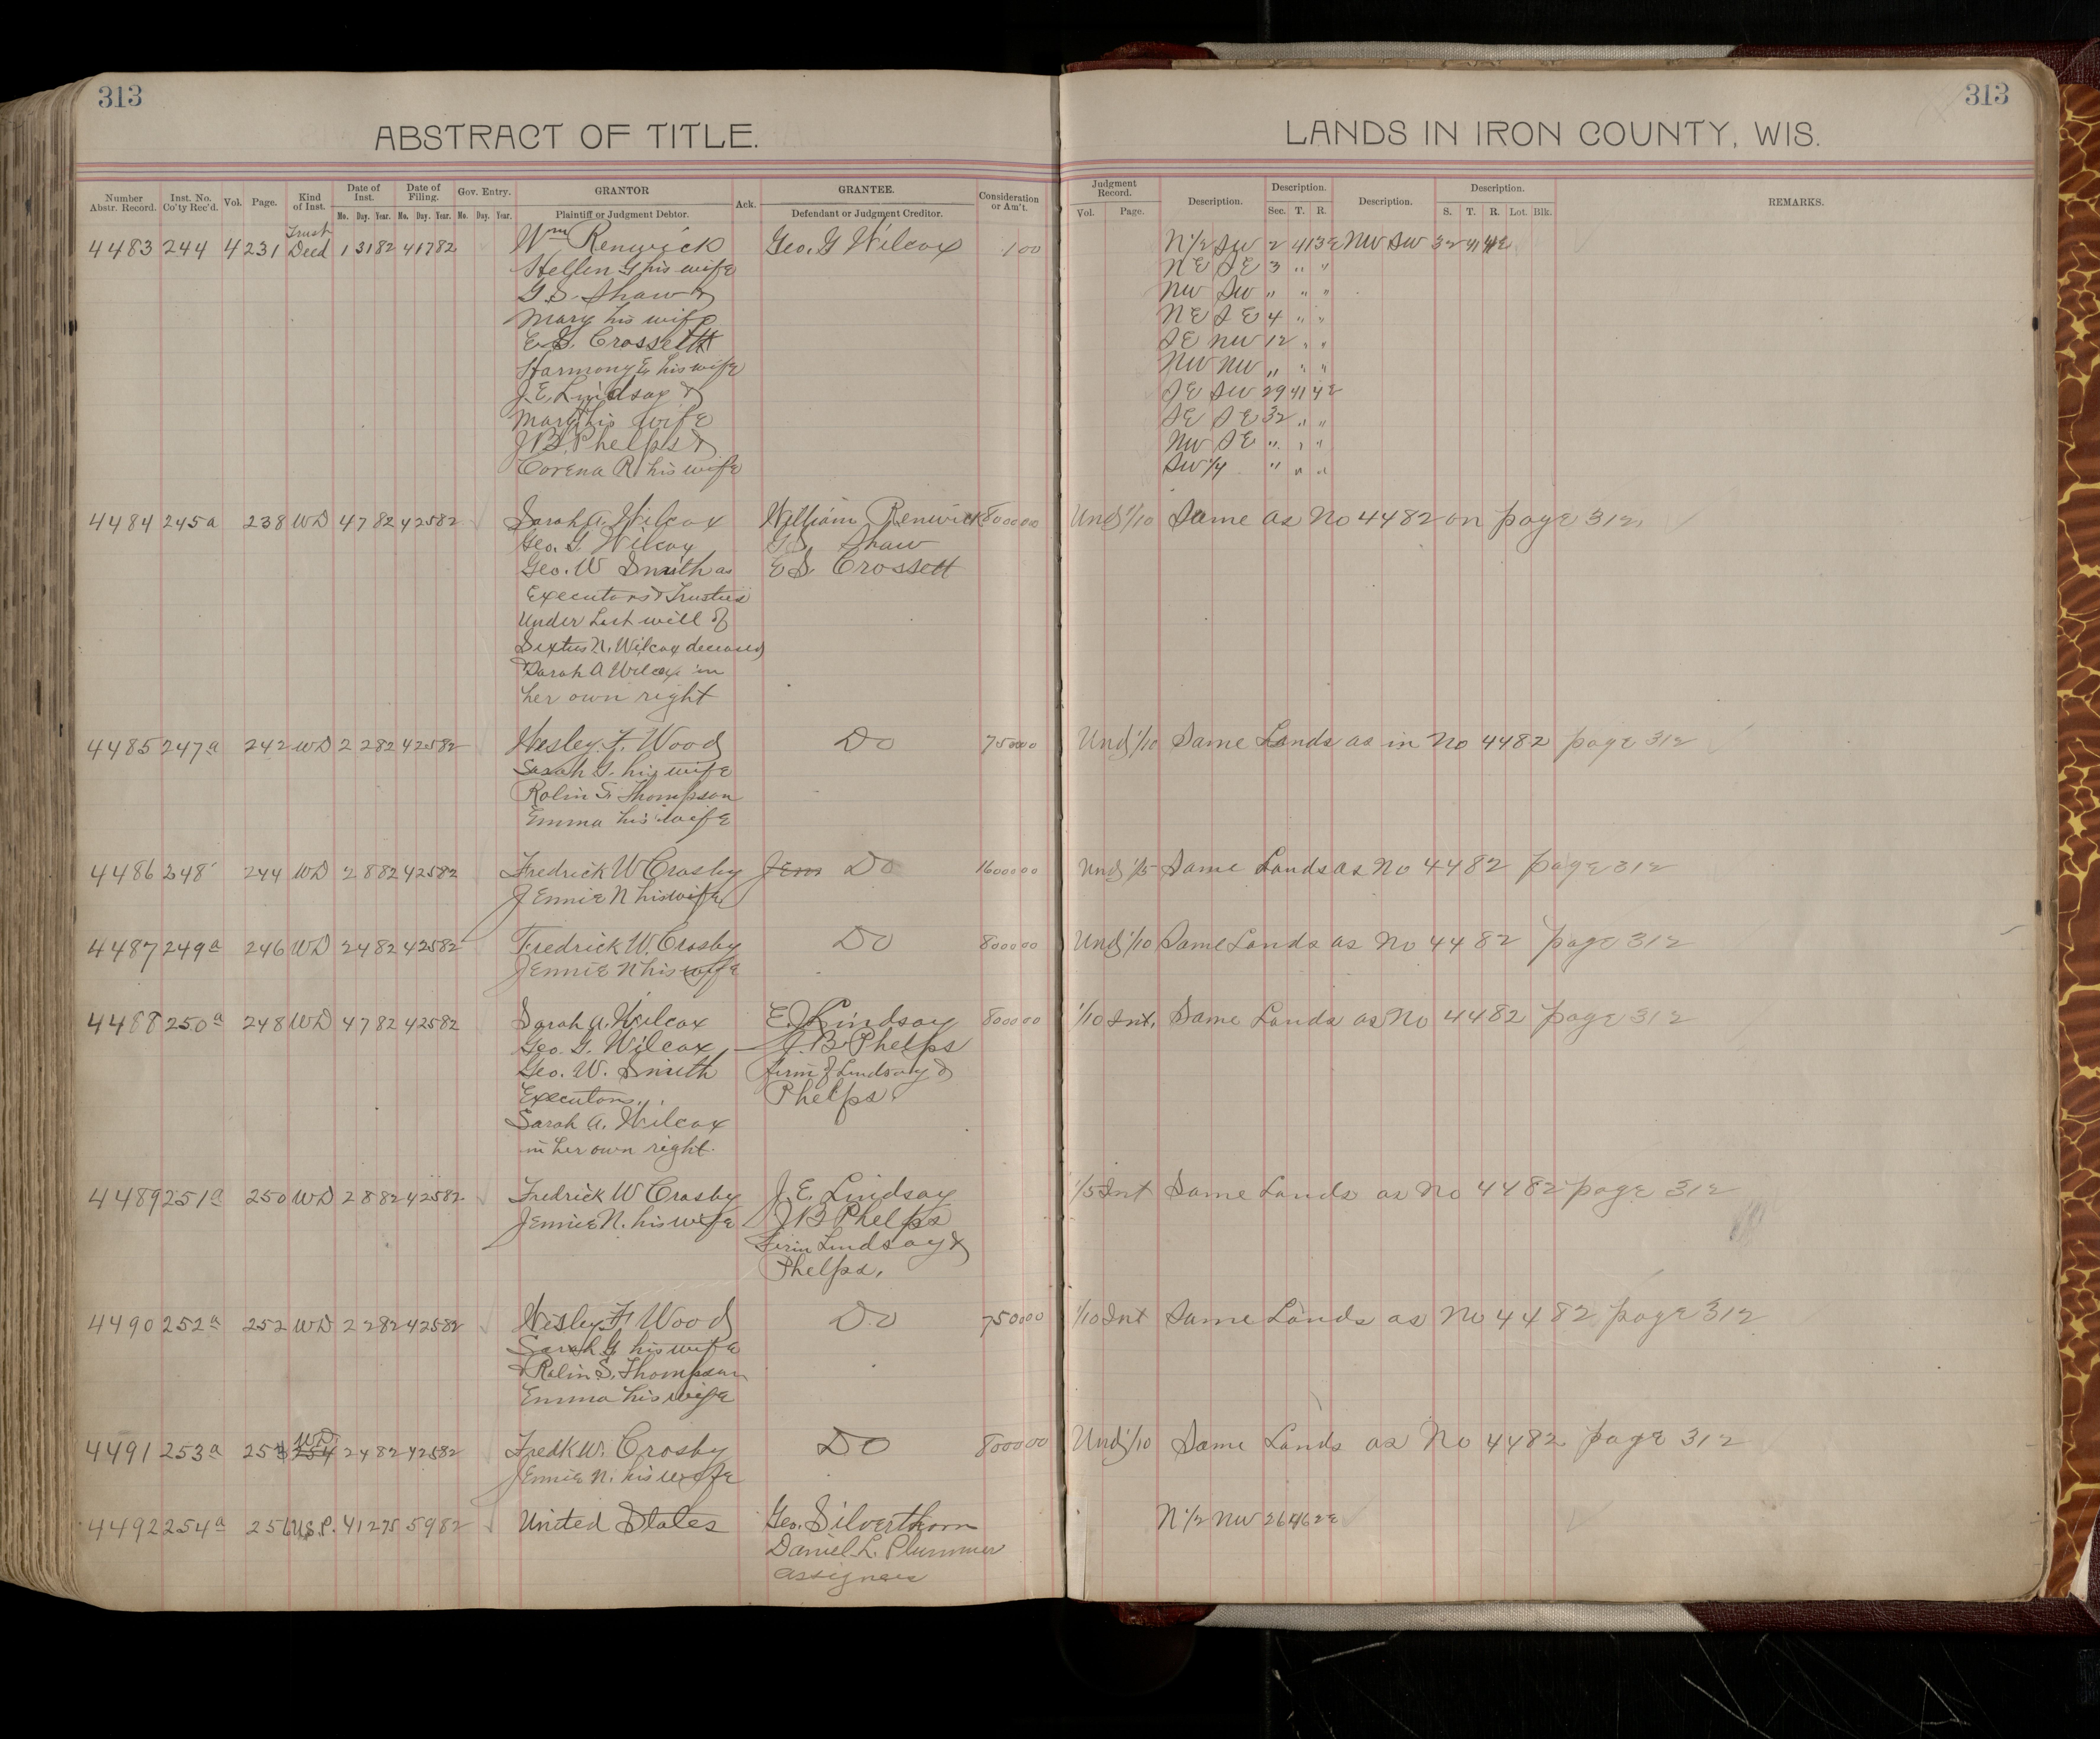 313
313
ABSTRACT OF TITLE.
LANDS IN IRON COUNTY, WIS.
Number Abstr. Record. Inst. No. Co'ty Rec'd. Vol. Page. Kind of Inst. Date of Inst. Mo. Day. Year. Date of Filing. Mo. Day. Year. Gov. Entry. Mo. Day. Year. GRANTOR Plaintiff or Judgment Debtor. Ack. GRANTEE. Defendant or Judgment Creditor. Consideration or Am't. Judgment Record. Vol. Page. Description. Description. Sec. T. R. Description. Description. S. T. R. Lot. Blk. REMARKS.
4483 244 4 231 Trust Deed 1 31 82 4 17 82 Wm Renwick Geo. G Wilcox 1 00 N 1/2 SW 2 41 3E NW SW 32 41 4E
Hellen G his wife NE SE 3 " "
G.S. Shaw & NW SW " " "
Mary his wife NE SE 4 " "
E.S. Crossett SE NW 12 " "
Harmony E his wife NW NW " " "
J.E. Lindsay & SE SW 29 41 4E
Mary his wife SE SE 32 " "
J.B. Phelps & NW SE " " "
Corena R his wife SW 1/4 " " "
4484 245a 238 WD 4 7 82 4 25 82 Sarah A. Wilcox William Renwick 8000 00 Und 1/10 Same as No 4482 on page 312.
Geo. G. Wilcox G S. Shaw
Geo. W Smith as E S. Crossett
Executors & Trustees
Under Last will of
Sextus N. Wilcox deceased
& Sarah A Wilcox in
her own right
4485 247a 242 WD 2 2 82 4 25 82 Wesley F. Wood Do 7500 00 Und 1/10 Same Lands as in No 4482 page 312
Sarah G. his wife
Rolin S. Thompson
Emma his wife
4486 248 244 WD 2 8 82 4 25 82 Fredrick W Crosby Jem Do 16000 00 Und 1/5 Same Lands as No 4482 page 312
Jennie N his wife
4487 249a 246 WD 2 4 82 4 25 82 Fredrick W. Crosby Do 8000 00 Und 1/10 Same Lands as No 4482 page 312
Jennie N his wife
4488 250a 248 WD 4 7 82 4 25 82 Sarah A. Wilcox E. J Lindsay 8000 00 1/10 Int. Same Lands as No 4482 page 312
Geo. G. Wilcox J. B Phelps
Geo. W. Smith firm of Lindsay &
Executors. Phelps
Sarah A. Wilcox
in her own right
4489 251a 250 WD 2 8 82 4 25 82 Fredrick W Crosby J. E. Lindsay 1/5 Int Same Lands as No 4482 page 312
Jennie N. his wife J B Phelps
Firm Lindsay &
Phelps.
4490 252a 252 WD 2 2 82 4 25 82 Wesley F. Wood Do 7500 00 1/10 Int Same Lands as No 4482 page 312
Sarah G his wife
& Rolin S. Thompson
Emma his wife
4491 253a 254 WD 2 4 82 4 25 82 Fredk W. Crosby Do 8000 00 Und 1/10 Same Lands as No 4482 page 312
Jennie N. his wife
4492 254a 256 U.S.P. 4 12 75 5 9 82 United States Geo. Silverthorn N 1/2 NW 26 46 2E
Daniel L. Plummer
assignees